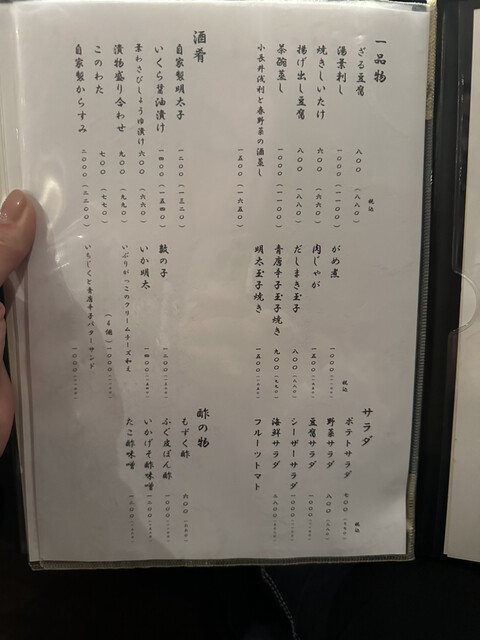 一品物
税込
ざる豆腐 八〇〇（八八〇）
湯葉刺し 一〇〇〇（一一〇〇）
焼きしいたけ 六〇〇（六六〇）
揚げ出し豆腐 八〇〇（八八〇）
茶碗蒸し 一〇〇〇（一一〇〇）
小長井浅利と春野菜の酒蒸し 一五〇〇（一六五〇）
酒肴
自家製明太子 一二〇〇（一三二〇）
いくら醤油漬け 一四〇〇（一五四〇）
葉わさびしょうゆ漬け 六〇〇（六六〇）
漬物盛り合わせ 九〇〇（九九〇）
このわた 七〇〇（七七〇）
自家製からすみ 二〇〇〇（二二〇〇）
税込
がめ煮 一〇〇〇
肉じゃが 一五〇〇
だしまき玉子 八〇〇
青唐辛子玉子焼き 九〇〇（九九〇）
明太玉子焼き 一五〇〇
数の子 一二〇〇
いか明太 一四〇〇
いぶりがっこのクリームチーズ和え
（4個） 一〇〇〇
いちじくと青唐辛子バターサンド
サラダ
税込
ポテトサラダ 七〇〇
野菜サラダ 八〇〇
豆腐サラダ 一〇〇〇
シーザーサラダ 一〇〇〇
海鮮サラダ
フルーツトマト
酢の物
もずく酢 六〇〇
ふぐ皮ぽん酢 一〇〇〇
いかげそ酢味噌 一〇〇〇
たこ酢味噌 一二〇〇